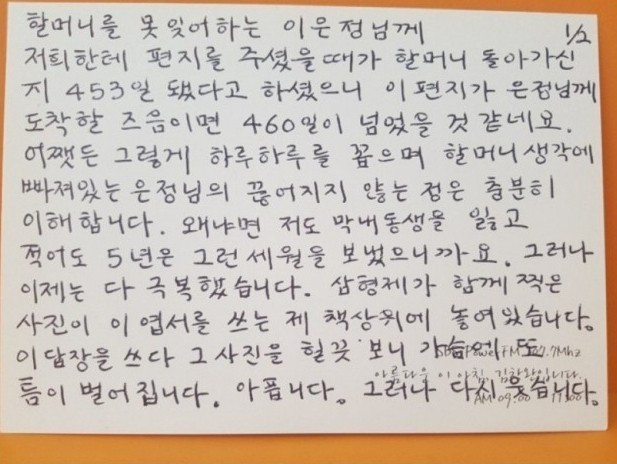 할머니를 못잊어하는 이은정님께
1/2
저희한테 편지를 주셨을때가 할머니 돌아가신
지 453일 됐다고 하셨으니 이 편지가 은정님께
도착할 즈음이면 460일이 넘었을 것 같네요.
어쨋든 그렇게 하루하루를 꼽으며 할머니생각에
빠져있는 은정님의 끊어지지 않는 정은 충분히
이해합니다. 왜냐면 저도 막내동생을 잃고
적어도 5년은 그런세월을 보냈으니까요. 그러나
이제는 다 극복했습니다. 삼형제가 함께 찍은
사진이 이 엽서를 쓰는 제 책상위에 놓여있습니다.
이답장을 쓰다 그사진을 힐끗 보니 가슴에 또
SBS Power FM 107.7Mhz
틈이 벌어집니다. 아픕니다. 그러나 다시 웃습니다.
아름다운 이 아침, 김창완입니다.
AM 09:00 - 11:00